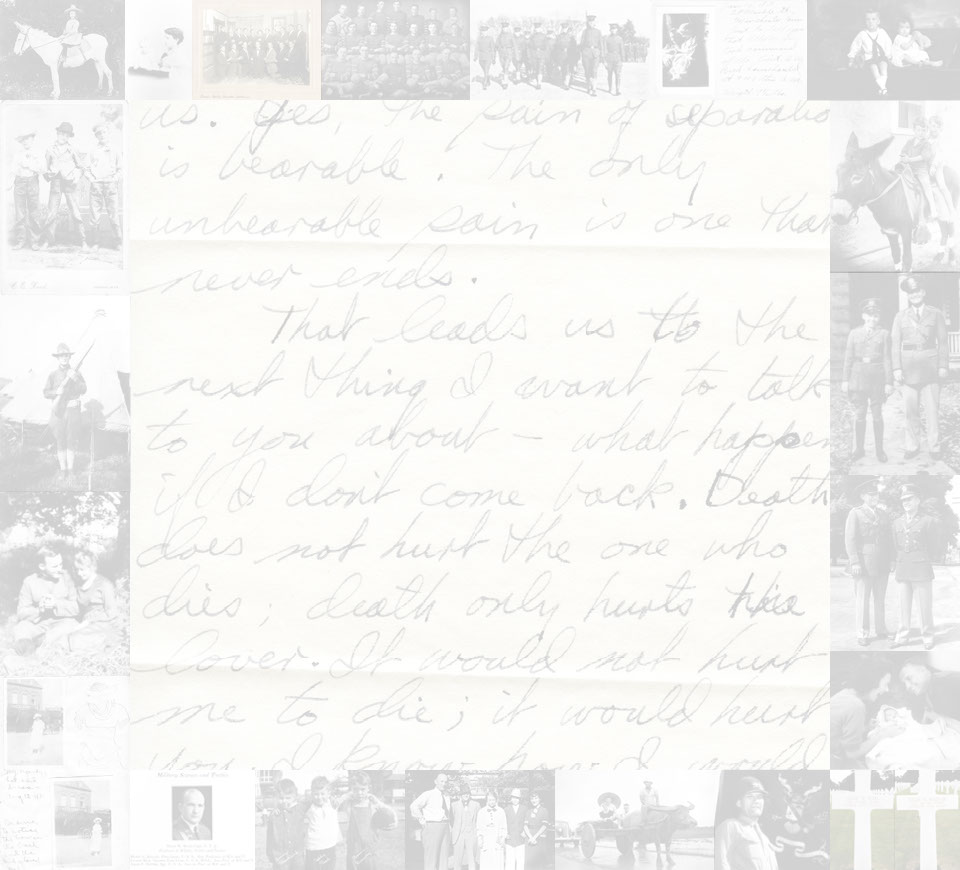 us. Yes, the pain of separatio
is bearable. The only
unbearable pain is one that
never ends.
That leads us to the
next thing I want to talk
to you about - what happen
if I don't come back. Death
does not hurt the one who
dies; death only hurts the
lover. It would not hurt
me to die; it would hurt
you. I know how I would